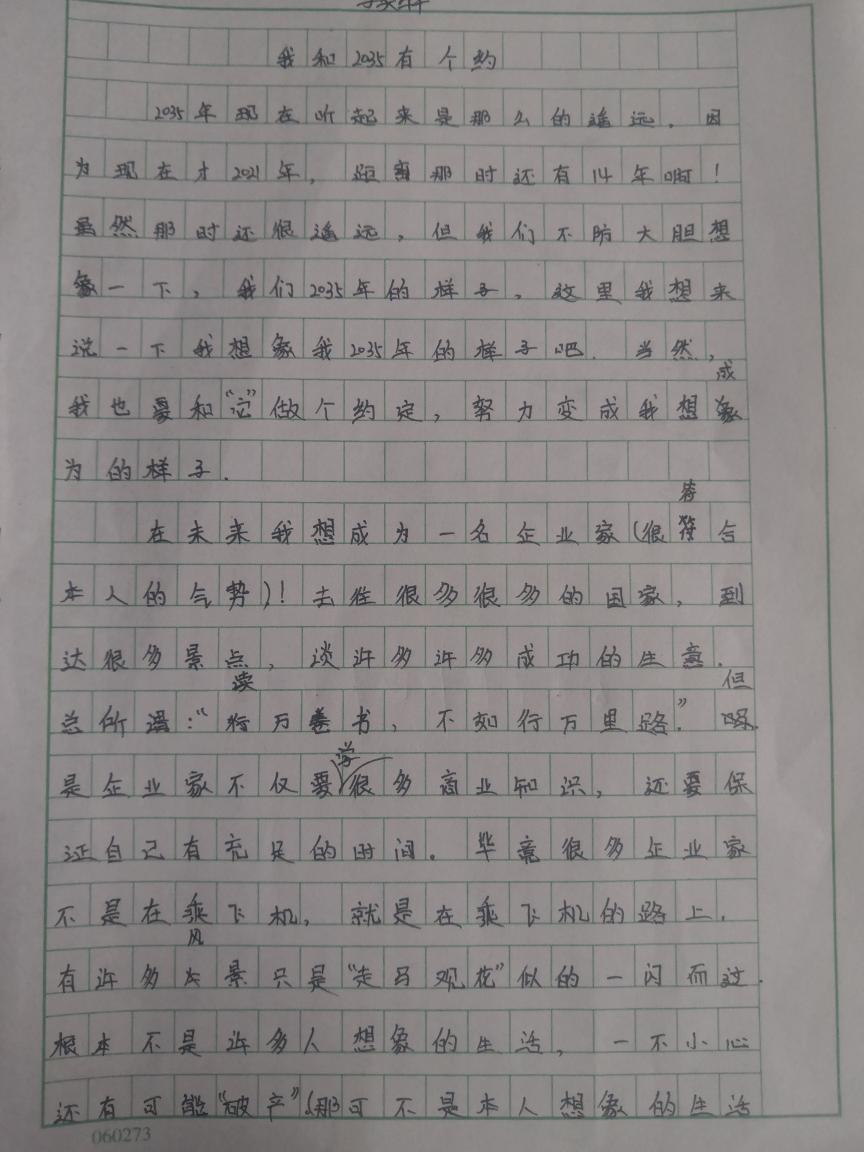 我和2035有个约
2035年现在听起来是那么的遥远．因
为现在才2021年，距离那时还有14年啊！
虽然那时还很遥远，但我们不妨大胆想
象一下，我们2035年的样子．这里我想来
说一下我想象我2035年的样子吧．当然，
我也要和“它”做个约定，努力变成我想成
为的样子．
在未来我想成为一名企业家(很符合
本人的气势)！去往很多很多的国家，到
达很多景点，谈许多许多成功的生意．
总所谓：“读万卷书，不如行万里路．”但
是企业家不仅要学很多商业知识，还要保
证自己有充足的时间．毕竟很多企业家
不是在乘飞机，就是在乘飞机的路上．
有许多风景只是“走马观花”似的一闪而过．
根本不是许多人想象的生活，一不小心
还有可能“破产”(那可不是本人想象的生活
060273